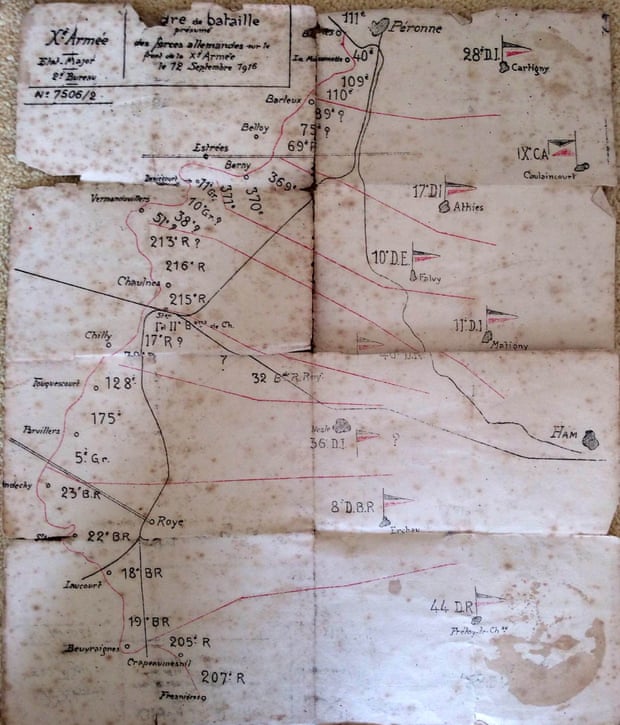 Xᵉ Armée
Etat-Major
2ᵉ Bureau
Nº 7506/2
dre de bataille
présumé
des forces allemandes sur le
front de la Xᵉ Armée
le 12 Septembre 1916
111ᵉ
Péronne
40ᵉ
28ᵉ D.I.
Cartigny
109ᵉ
110ᵉ
Barleux
89ᵉ ?
Belloy
75ᵉ ?
69ᵉ R
Estrées
IXᵉ CA
Caulaincourt
Berny
369ᵉ
Deniécourt
11ᵉ Gr.
371ᵉ
370ᵉ
17ᵉ DI
Athies
Vermandovillers
10ᵉ Gr. ?
38ᵉ ?
213ᵉ R ?
10ᵉ D.E.
Falvy
216ᵉ R
Chaulnes
215ᵉ R
11ᵉ D.I
Matigny
de Ch.
17ᵉ R ?
Chilly
?
32 Bᵈᵉ R.
Fouquescourt
128ᵉ
175ᵉ
Parvillers
Nesle
36 D.I
?
Ham
5ᵉ Gr.
ndechy
23ᵉ B.R
8ᵉ D.B.R
Ercheu
Roye
22ᵉ B.R
18ᵉ BR
Laucourt
44 D.R
19ᵉ BR
Beuvraignes
205ᵉ R
Crapeaumesnil
207ᵉ R
Fresnières